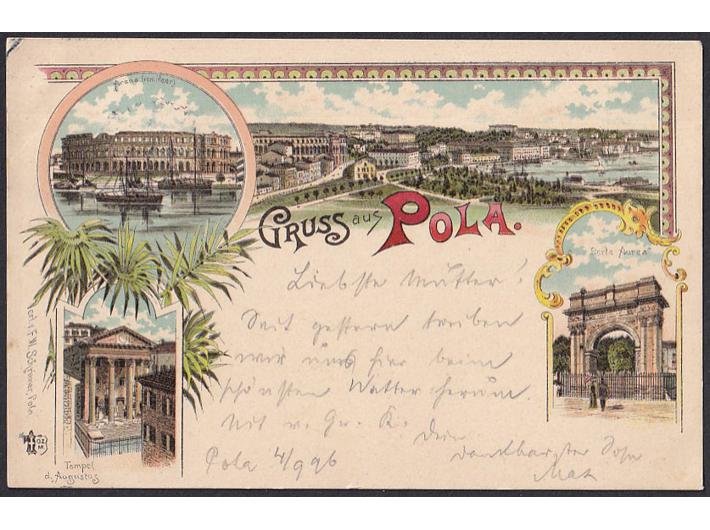 Arena (vom Meer)
GRUSS aus POLA.
Porta Aurea
Liebste Mutter!
Seit gestern treiben
wir uns hier beim
schönsten Wetter herum.
Mit v. Gr. K.
Dein
dankbarster Sohn
Max
Pola 4/9 96
Tempel
d. Augustus